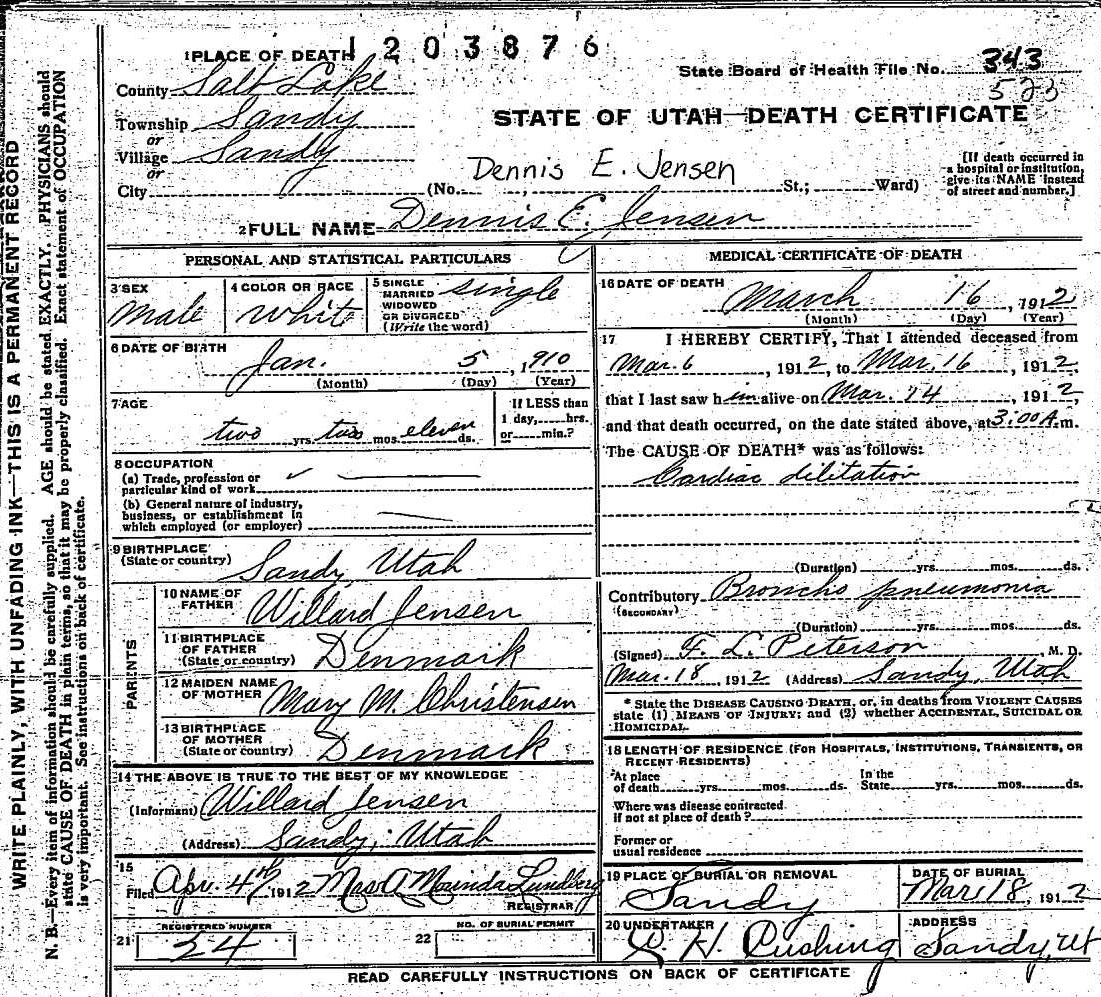 1203876
1 PLACE OF DEATH
State Board of Health File No. 343
523
County Salt Lake
STATE OF UTAH—DEATH CERTIFICATE
Township Sandy
or
Village Sandy
or
City
(No. Dennis E. Jensen St.; Ward)
[If death occurred in
a hospital or institution,
give its NAME instead
of street and number.]
2 FULL NAME Dennis E. Jensen
PERSONAL AND STATISTICAL PARTICULARS
3 SEX
Male
4 COLOR OR RACE
White
5 SINGLE
MARRIED
WIDOWED
OR DIVORCED
(Write the word)
single
6 DATE OF BIRTH
Jan. 5, 1910
(Month) (Day) (Year)
7 AGE
two yrs. two mos. eleven ds.
If LESS than
1 day, hrs.
or min.?
8 OCCUPATION
(a) Trade, profession or
particular kind of work
(b) General nature of industry,
business, or establishment in
which employed (or employer)
9 BIRTHPLACE
(State or country)
Sandy, Utah
PARENTS
10 NAME OF
FATHER
Willard Jensen
11 BIRTHPLACE
OF FATHER
(State or country)
Denmark
12 MAIDEN NAME
OF MOTHER
Mary M. Christensen
13 BIRTHPLACE
OF MOTHER
(State or country)
Denmark
14 THE ABOVE IS TRUE TO THE BEST OF MY KNOWLEDGE
(Informant) Willard Jensen
(Address) Sandy, Utah
15
Filed Apr. 4th 1912 Mrs A Morinda Lundberg
REGISTRAR
REGISTERED NUMBER
21 24
NO. OF BURIAL PERMIT
22
MEDICAL CERTIFICATE OF DEATH
16 DATE OF DEATH
March 16, 1912
(Month) (Day) (Year)
17 I HEREBY CERTIFY, That I attended deceased from
Mar. 6, 1912, to Mar. 16, 1912,
that I last saw him alive on Mar. 14, 1912,
and that death occurred, on the date stated above, at 3:00 A.m.
The CAUSE OF DEATH* was as follows:
Cardiac dilitation
(Duration) yrs. mos. ds.
Contributory Broncho pneumonia
(SECONDARY)
(Duration) yrs. mos. ds.
(Signed) F. L. Peterson, M. D.
Mar. 18, 1912 (Address) Sandy, Utah
* State the DISEASE CAUSING DEATH, or, in deaths from VIOLENT CAUSES
state (1) MEANS OF INJURY; and (2) whether ACCIDENTAL, SUICIDAL OR
HOMICIDAL.
18 LENGTH OF RESIDENCE (FOR HOSPITALS, INSTITUTIONS, TRANSIENTS, OR
RECENT RESIDENTS)
At place
of death yrs. mos. ds.
In the
State yrs. mos. ds.
Where was disease contracted
if not at place of death?
Former or
usual residence
19 PLACE OF BURIAL OR REMOVAL
Sandy
DATE OF BURIAL
Mar. 18, 1912
20 UNDERTAKER
H. Cushing
ADDRESS
Sandy, Ut
READ CAREFULLY INSTRUCTIONS ON BACK OF CERTIFICATE
WRITE PLAINLY, WITH UNFADING INK—THIS IS A PERMANENT RECORD
N. B.—Every item of information should be carefully supplied. AGE should be stated EXACTLY. PHYSICIANS should
state CAUSE OF DEATH in plain terms, so that it may be properly classified. Exact statement of OCCUPATION
is very important. See instructions on back of certificate.